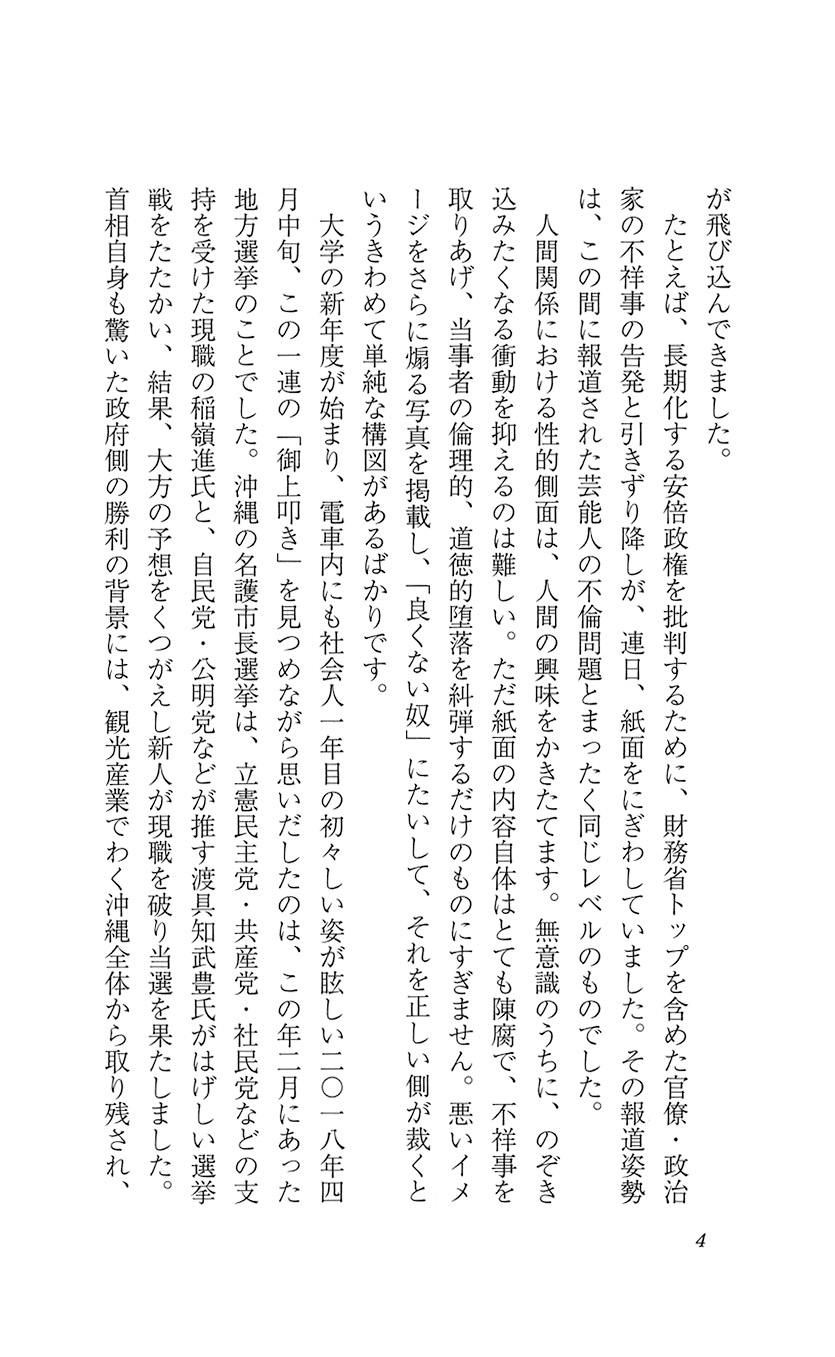 が飛び込んできました。
たとえば、長期化する安倍政権を批判するために、財務省トップを含めた官僚・政治
家の不祥事の告発と引きずり降しが、連日、紙面をにぎわしていました。その報道姿勢
は、この間に報道された芸能人の不倫問題とまったく同じレベルのものでした。
人間関係における性的側面は、人間の興味をかきたてます。無意識のうちに、のぞき
込みたくなる衝動を抑えるのは難しい。ただ紙面の内容自体はとても陳腐で、不祥事を
取りあげ、当事者の倫理的、道徳的堕落を糾弾するだけのものにすぎません。悪いイメ
ージをさらに煽る写真を掲載し、「良くない奴」にたいして、それを正しい側が裁くと
いうきわめて単純な構図があるばかりです。
大学の新年度が始まり、電車内にも社会人一年目の初々しい姿が眩しい二〇一八年四
月中旬、この一連の「御上叩き」を見つめながら思いだしたのは、この年二月にあった
地方選挙のことでした。沖縄の名護市長選挙は、立憲民主党・共産党・社民党などの支
持を受けた現職の稲嶺進氏と、自民党・公明党などが推す渡具知武豊氏がはげしい選挙
戦をたたかい、結果、大方の予想をくつがえし新人が現職を破り当選を果たしました。
首相自身も驚いた政府側の勝利の背景には、観光産業でわく沖縄全体から取り残され、
4